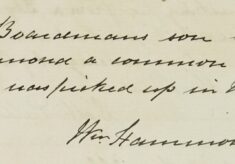 Boardmans son
mond a common
was picked up in
Wm Hammon